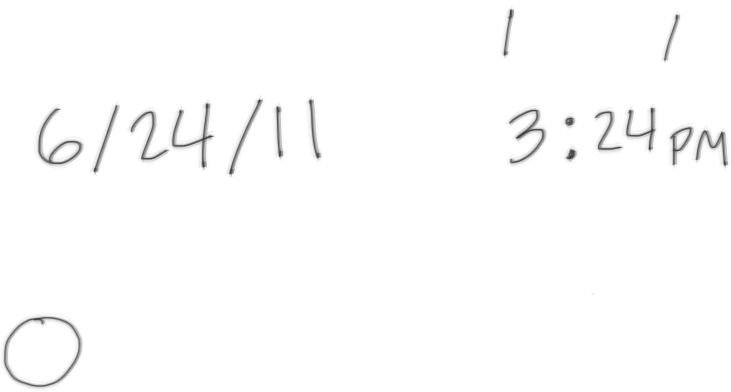 6/24/11 3:24PM